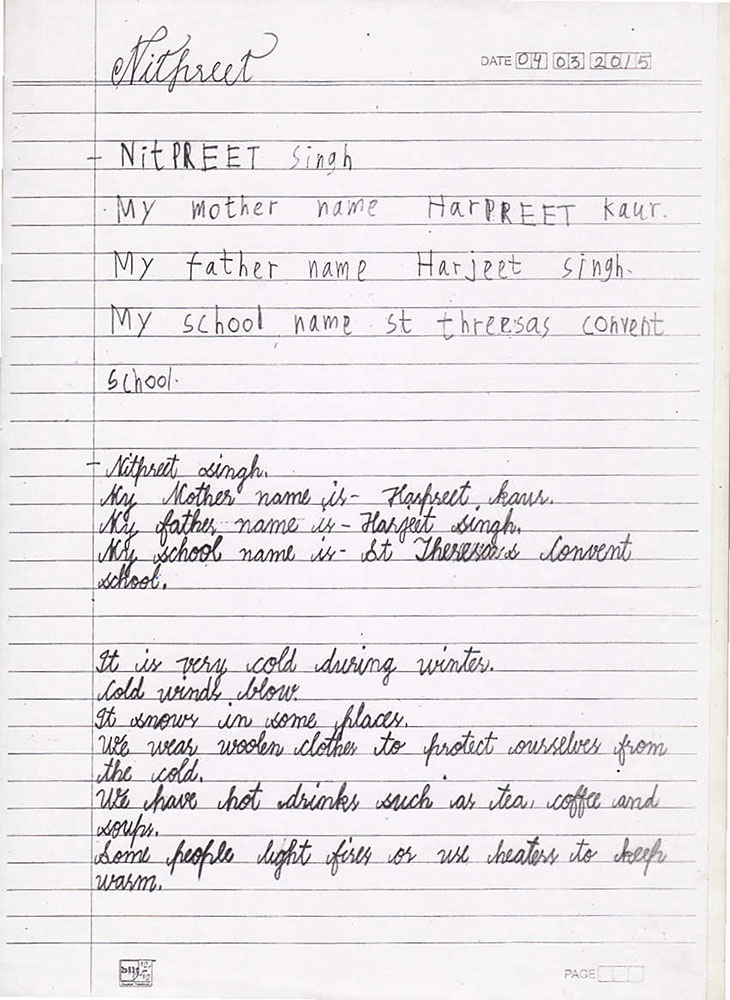 Nitpreet
DATE 04 03 2015
- NitPREET Singh
My mother name HarPREET kaur.
My father name Harjeet singh.
My school name st threesas convent
school.
- Nitpreet singh.
My Mother name is - Harpreet kaur.
My father name is - Harjeet singh.
My school name is - St Theresa's Convent
school.
It is very cold during winter.
Cold winds blow.
It snows in some places.
We wear woolen clothes to protect ourselves from
the cold.
We have hot drinks such as tea, coffee and
soups.
Some people light fires or use heaters to keep
warm.
PAGE